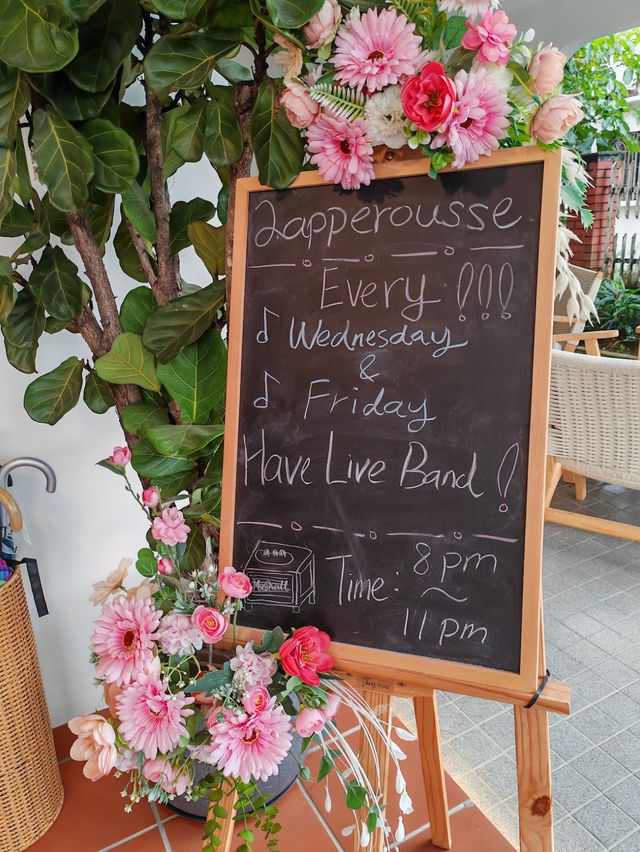 Lapperousse
Every !!!
Wednesday
&
Friday
Have Live Band!
Marshall
Time: 8pm
~
11pm